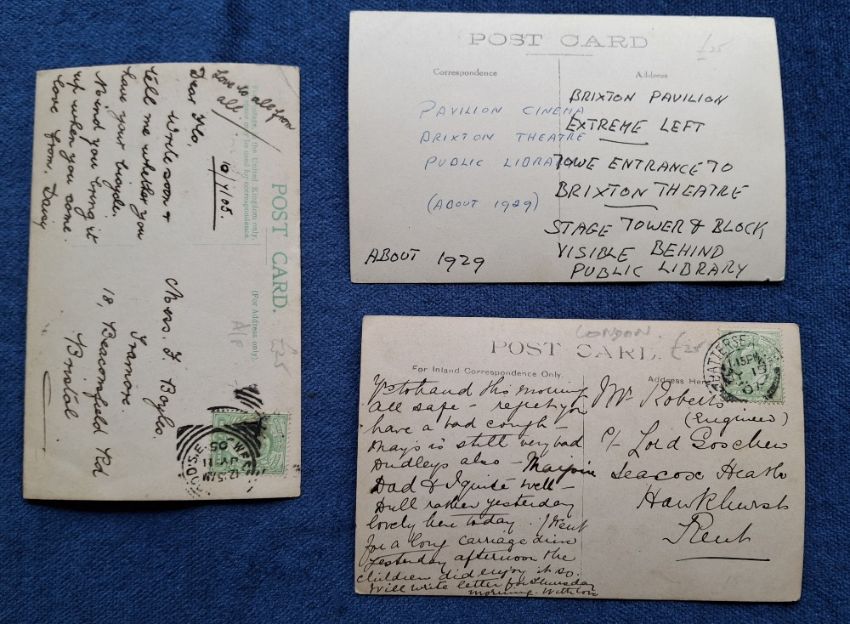 Love to all from
all
10/1/05.
Dear Flo,
Write soon &
tell me whether you
have your bicycle.
Mind you bring it
up when you come.
love from.
POST CARD.
(For Address only).
A/P
£25
Miss. F
Tramore,
18, Beaconsfield Rd
Bristol
12.15AM
JA 11
05
POST CARD
£25
Correspondence
Address
PAVILION CINEMA
BRIXTON THEATRE
PUBLIC
(ABOUT 1929)
ABOUT 1929
BRIXTON PAVILION
EXTREME LEFT
ENTRANCE TO
BRIXTON THEATRE
STAGE TOWER & BLOCK
VISIBLE BEHIND
PUBLIC LIBRARY
LONDON
£25
POST CARD.
For Inland Correspondence Only.
Address Here
BATTERSEA
to hand this morning
all safe - regret you
have a bad cough -
is still very bad
Dudleys also - Marjorie
Dad & I quite well -
Dull rather yesterday
lovely here today. I went
for a long carriage drive
yesterday afternoon the
children did enjoy it so.
Will write letter for Thursday
morning. With love
Mr Roberts
(Engineer)
c/o Lord Goschen
Seacox Heath
Hawkhurst
Kent